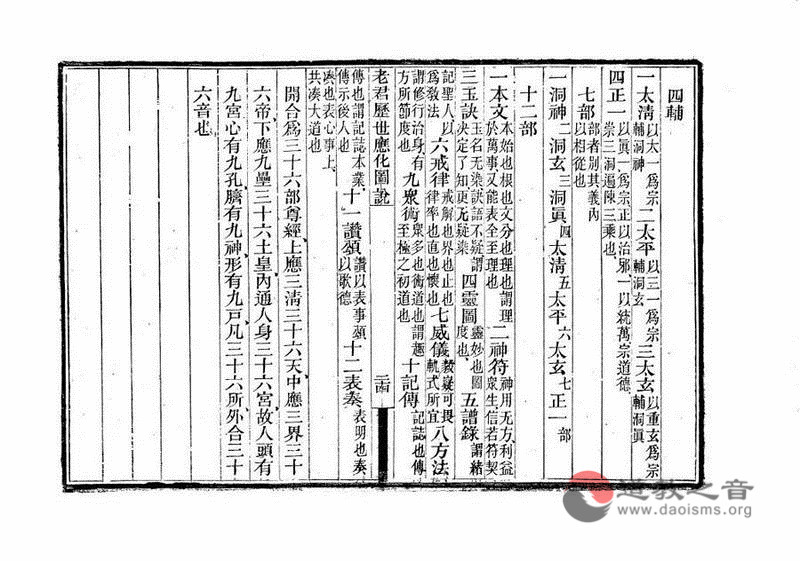 四輔
一太清以太一爲宗輔洞神二太平以三一爲宗輔洞玄三太玄以重玄爲宗輔洞眞
四正一以眞一爲宗正以治邪一以統萬宗道德崇三洞遍陳三乘也
七部部者別其義内以相從也
一洞神二洞玄三洞眞四太清五太平六太玄七正一部
十二部
一本文本始也根也文分也理也謂理於萬事又能表全至理也二神符神用无方利益衆生信若符契
三玉訣玉名无染訣語不疑謂決定了知更无疑染四靈圖靈妙也圖度也五譜錄謂緒
記聖人以爲敎法六戒律戒解也界也止也律率也直也慄也七威儀嶷可畏軌式所宜八方法
謂修行治身有方所節度也九衆術衆多也術道也謂趣至極之初道也十記傳記誌也傳
老君歷世應化圖說
傳也謂記誌本業傳示後人也十一讚頌讚以表事頌以歌德十二表奏表明也奏
湊也表心事上共湊大道也
開合爲三十六部尊經上應三清三十六天中應三界三十
六帝下應九壘三十六土皇内通人身三十六宮故人頭有
九宮心有九孔臍有九神形有九戸凡三十六所外合三十
六音也
道教之音
www.daoisms.org